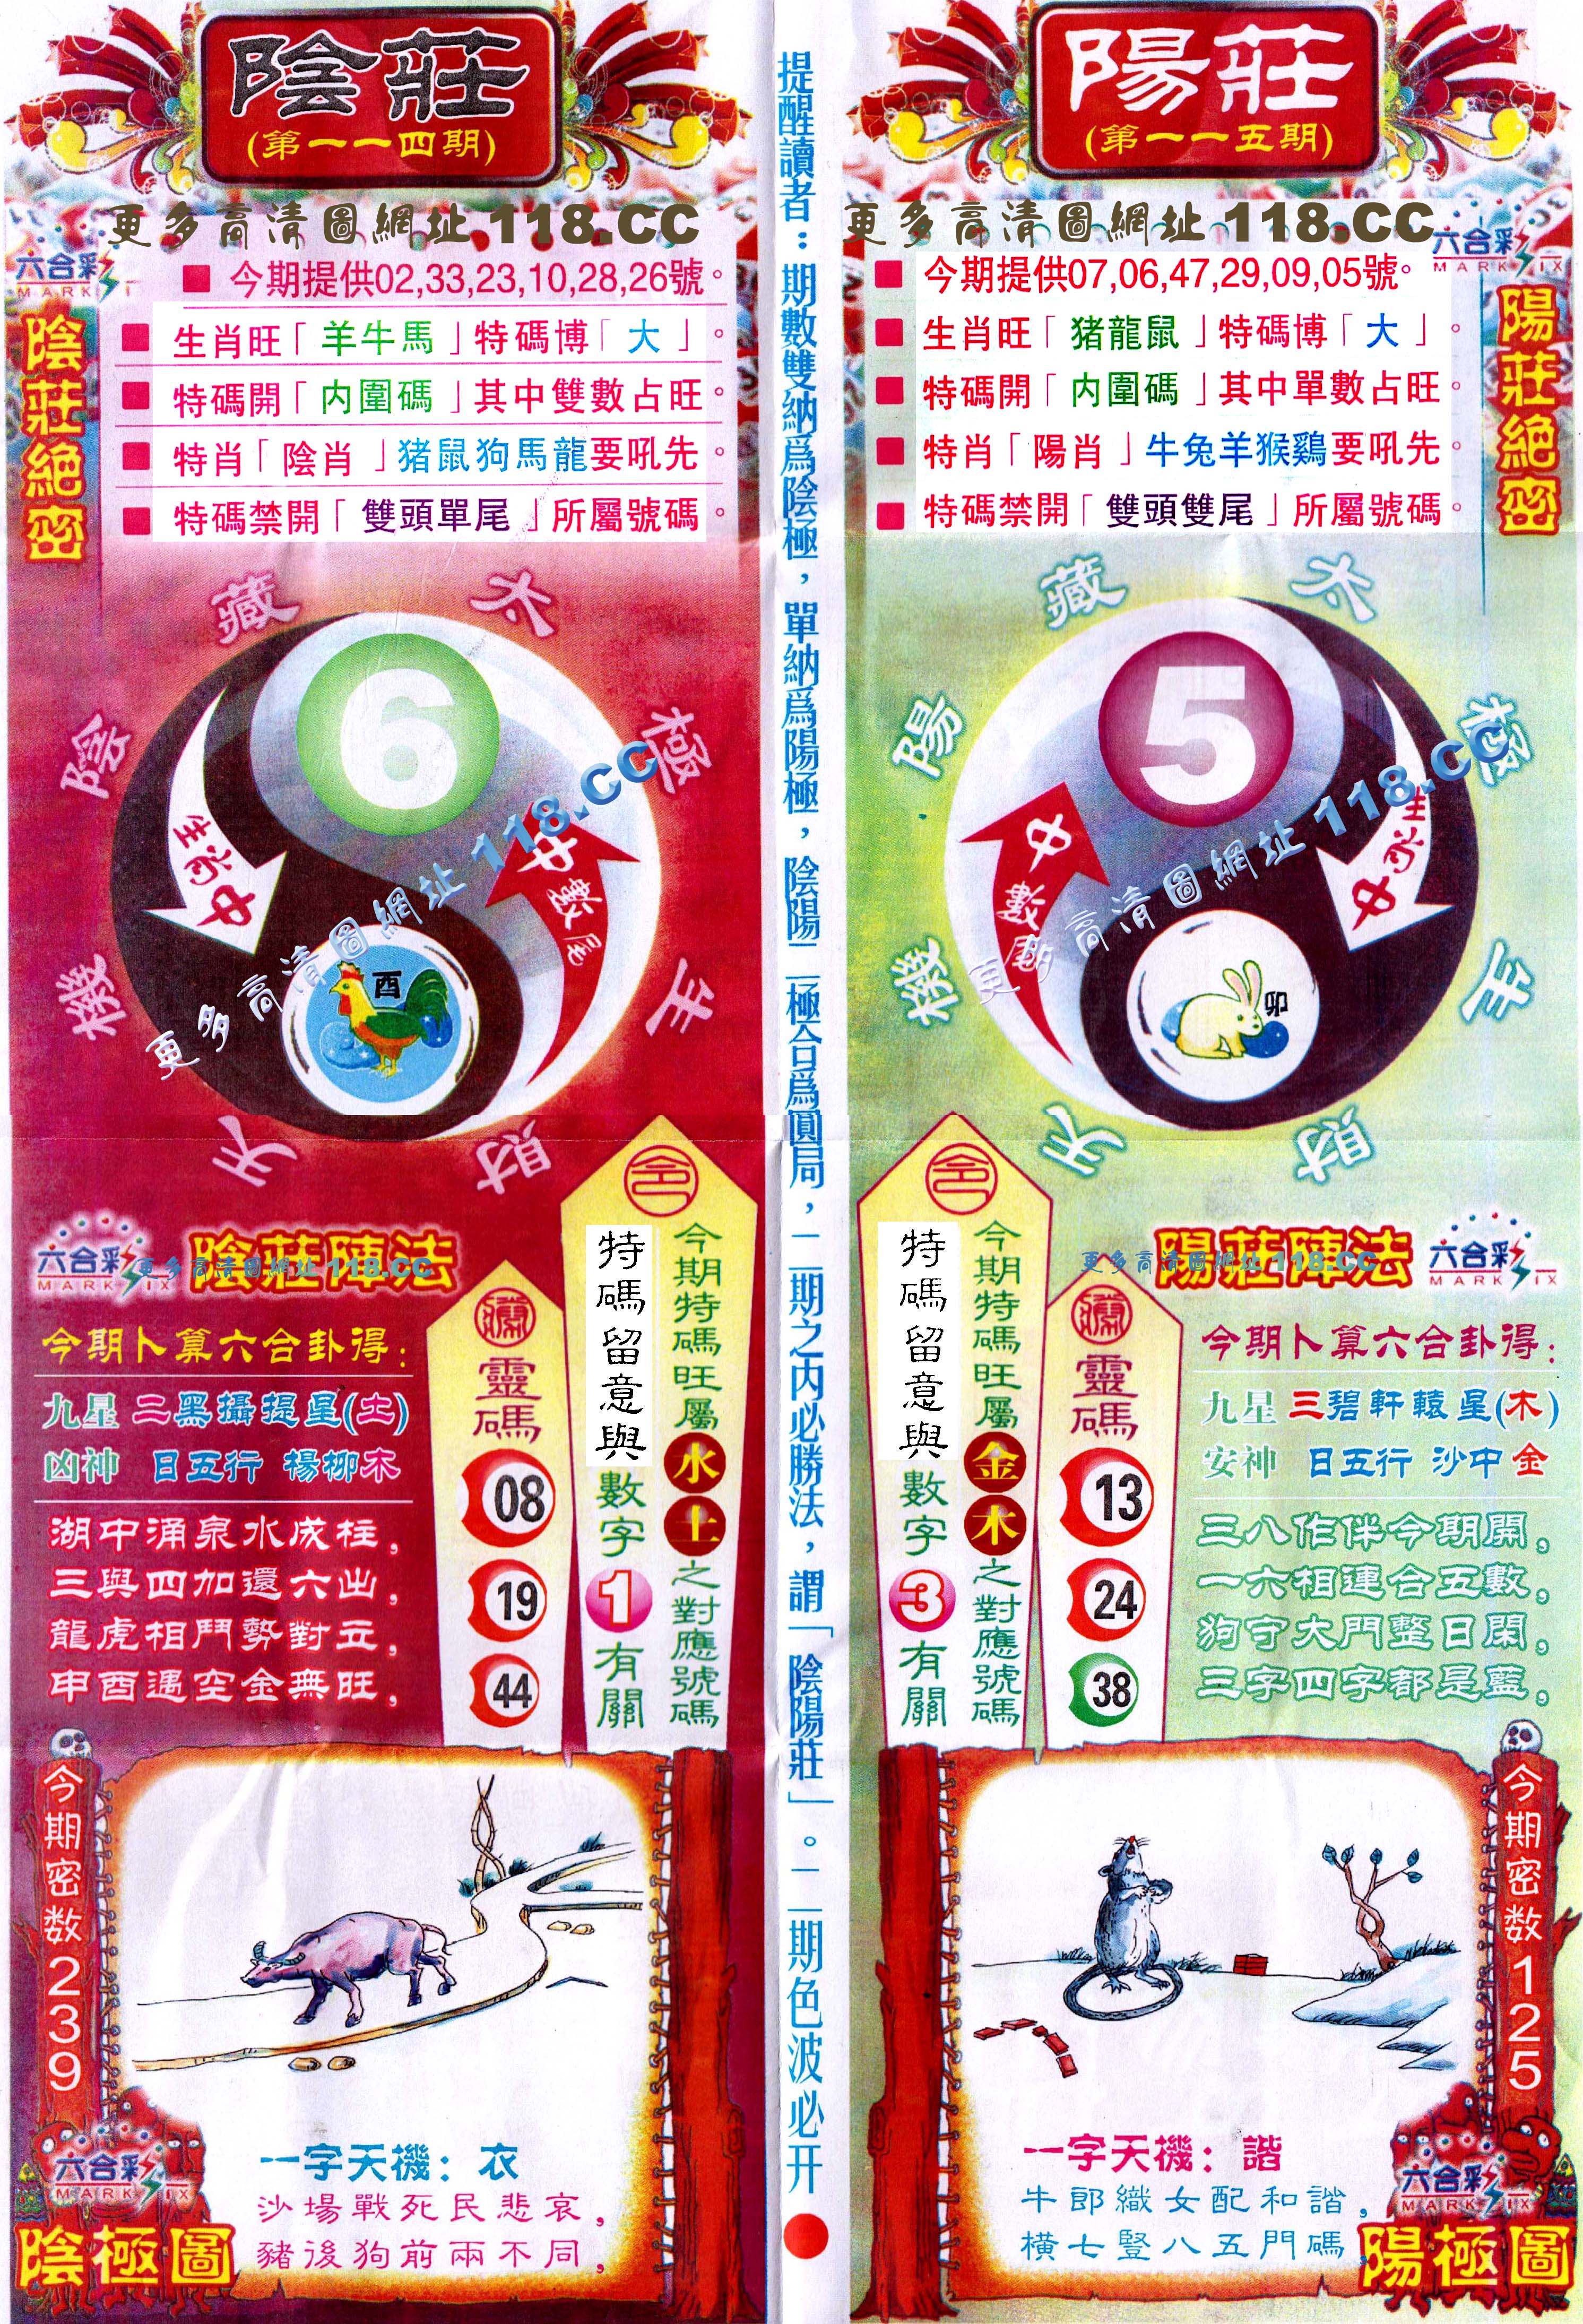 陰莊
(第一一四期)
更多高清圖網址 118.CC
六合彩
MARK SIX
陰莊絕密
■ 今期提供02,33,23,10,28,26號。
■ 生肖旺「羊牛馬」特碼博「大」。
■ 特碼開「内圍碼」其中雙數占旺。
■ 特肖「陰肖」猪鼠狗馬龍要吼先。
■ 特碼禁開「雙頭單尾」所屬號碼。
太極生財
天機陰藏
6
生肖中
中數尾
酉
更多高清圖網址 118.CC
六合彩
MARK SIX
陰莊陣法
更多高清圖網址 118.CC
今期卜算六合卦得:
九星 二黑攝提星(土)
凶神 日五行 楊柳木
湖中涌泉水成柱,
三與四加還六出,
龍虎相鬥勢對立,
申酉遇空金無旺,
靈碼
08
19
44
令
今期特碼旺屬水土之對應號碼
特碼留意與數字1有關
今期密数239
一字天機: 衣
沙場戰死民悲哀,
豬後狗前兩不同,
六合彩
MARK SIX
陰極圖
提醒讀者:期數雙納爲陰極,單納爲陽極,陰陽二極合爲圓局,一二期之内必勝法,謂「陰陽莊」。一二期色波必开
陽莊
(第一一五期)
更多高清圖網址 118.CC
六合彩
MARK SIX
陽莊絕密
■ 今期提供07,06,47,29,09,05號。
■ 生肖旺「猪龍鼠」特碼博「大」。
■ 特碼開「内圍碼」其中單數占旺。
■ 特肖「陽肖」牛兔羊猴鷄要吼先。
■ 特碼禁開「雙頭雙尾」所屬號碼。
太極生財
天機陽藏
5
中數尾
生肖中
卯
更多高清圖網址 118.CC
陽莊陣法
六合彩
MARK SIX
更多高清圖網址 118.CC
今期卜算六合卦得:
九星 三碧軒轅星(木)
安神 日五行 沙中金
三八作伴今期開,
一六相連合五數,
狗守大門整日閑,
三字四字都是藍,
令
今期特碼旺屬金木之對應號碼
特碼留意與數字3有關
靈碼
13
24
38
今期密数125
一字天機: 諧
牛郎織女配和諧,
橫七豎八五門碼,
六合彩
MARK SIX
陽極圖